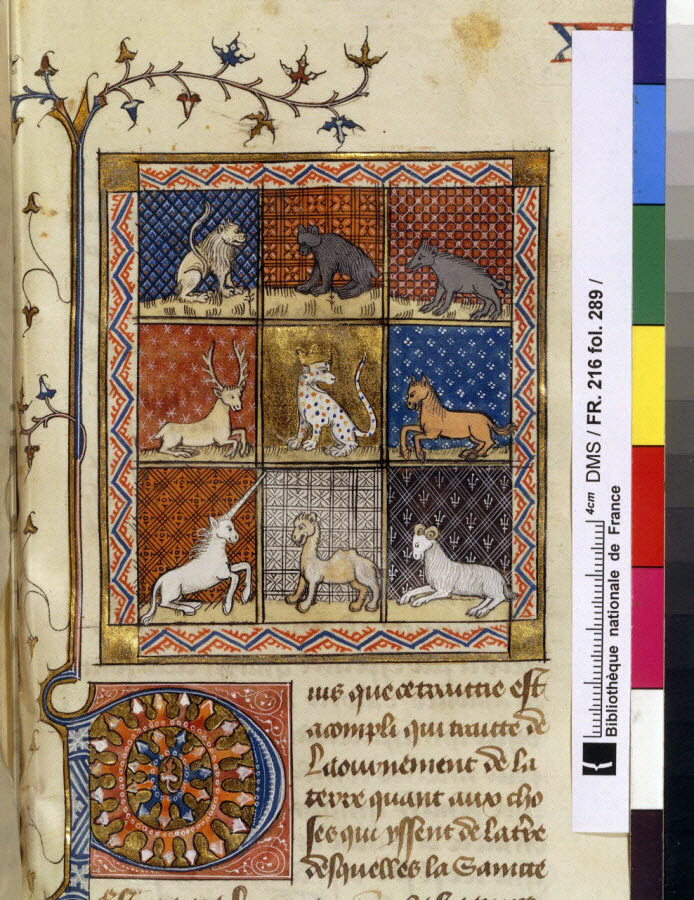 ius que ce traittie est
acompli qui traitte de
Laournement de la
terre quant aux cho
ses qui yssent de la tre
desquelles la Saincte
4cm DMS / FR. 216 fol. 289 /
Bibliothèque nationale de France